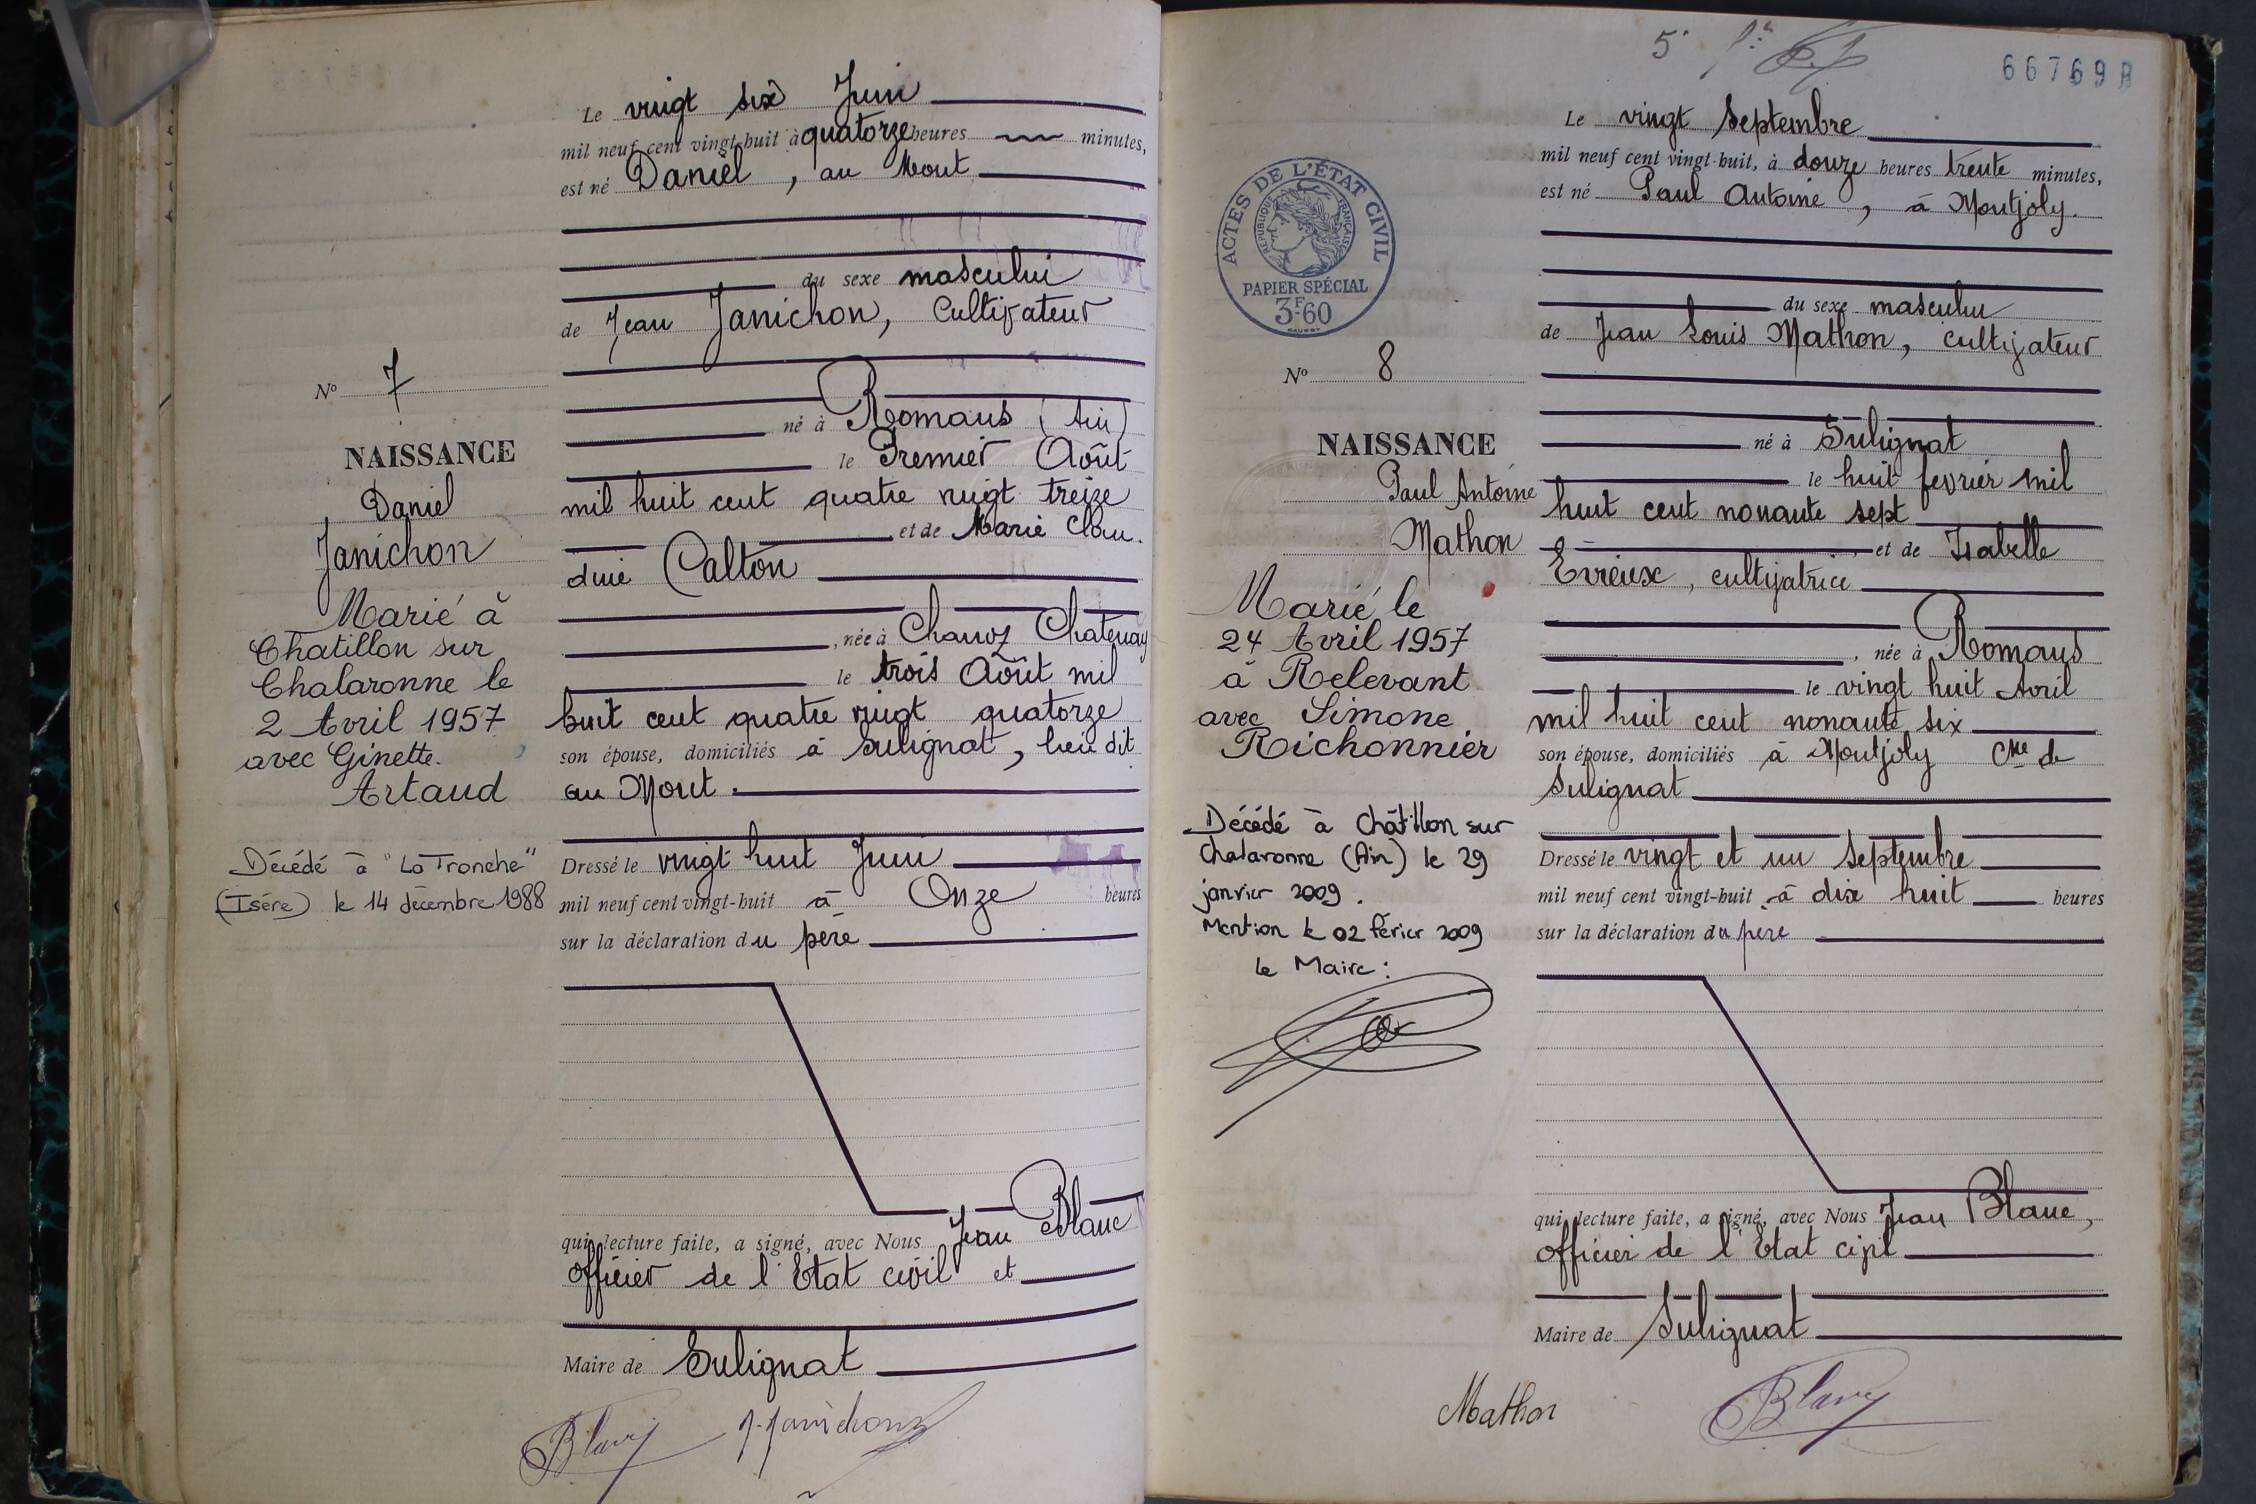 Le vingt six Juin
mil neuf cent vingt-huit à quatorze heures minutes,
est né Daniel, au Mont
du sexe masculin
de Jean Janichon, Cultivateur
né à Romans (Ain)
le Premier Août
mil huit cent quatre vingt treize
et de Marie Clau.
dine Calton
, née à Chanoz Chatenay
le trois Août mil
huit cent quatre vingt quatorze
son épouse, domiciliés à Sulignat, lieu dit
au Mont.
Dressé le vingt huit Juin
mil neuf cent vingt-huit à Onze heures
sur la déclaration du père
qui, lecture faite, a signé, avec Nous Jean Blanc
officier de l'Etat civil et
Maire de Sulignat
Blanc J. Janichon
N° 7
NAISSANCE
Daniel
Janichon
Marié à
Chatillon sur
Chalaronne le
2 Avril 1957
avec Ginette.
Artaud
Décédé à "La Tronche"
(Isère) le 14 décembre 1988
5
66769B
Le vingt Septembre
mil neuf cent vingt-huit, à douze heures trente minutes,
est né Paul Antoine, à Montjoly.
du sexe masculin
de Jean Louis Mathon, cultivateur
né à Sulignat
le huit fevrier mil
huit cent nonante sept
, et de Isabelle
Evrieux, cultivatrice
, née à Romans
le vingt huit Avril
mil huit cent nonante six
son épouse, domiciliés à Montjoly Cne de
Sulignat
Dressé le vingt et un Septembre
mil neuf cent vingt-huit, à dix huit heures
sur la déclaration du père
qui, lecture faite, a signé, avec Nous Jean Blanc,
officier de l'Etat civil
Maire de Sulignat
Mathon Blanc
ACTES DE L'ÉTAT CIVIL
RÉPUBLIQUE FRANÇAISE
PAPIER SPÉCIAL
3F.60
N° 8
NAISSANCE
Paul Antoine
Mathon
Marié le
24 Avril 1957
à Relevant
avec Simone
Richonnier
Décédé à Châtillon sur
Chalaronne (Ain) le 29
janvier 2009.
Mention le 02 février 2009
le Maire :